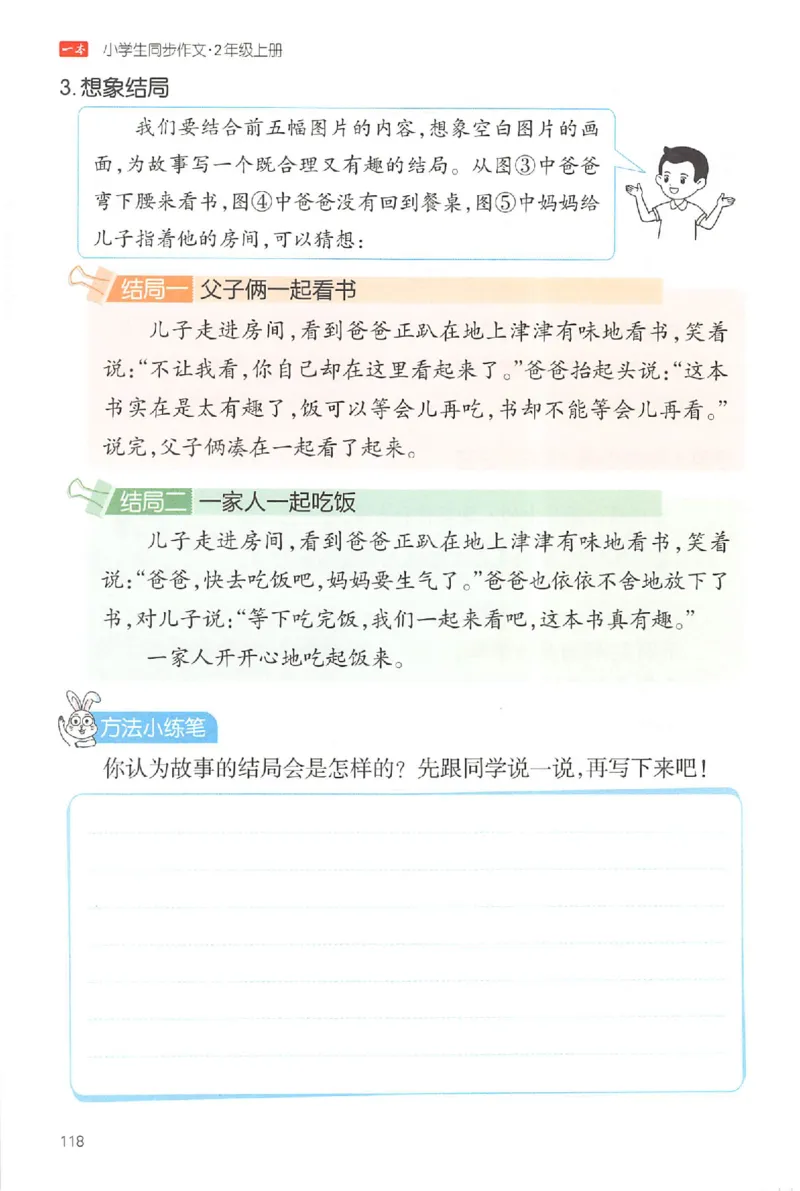 一本 小学生同步作文·2年级上册
3.想象结局
我们要结合前五幅图片的内容,想象空白图片的画
面,为故事写一个既合理又有趣的结局。从图③中爸爸
弯下腰来看书,图④中爸爸没有回到餐桌,图⑤中妈妈给
儿子指着他的房间,可以猜想:
结局一 父子俩一起看书
儿子走进房间,看到爸爸正趴在地上津津有味地看书,笑着
说:“不让我看,你自己却在这里看起来了。”爸爸抬起头说:“这本
书实在是太有趣了,饭可以等会儿再吃,书却不能等会儿再看。”
说完,父子俩凑在一起看了起来。
结局二 一家人一起吃饭
儿子走进房间,看到爸爸正趴在地上津津有味地看书,笑着
说:“爸爸,快去吃饭吧,妈妈要生气了。”爸爸也依依不舍地放下了
书,对儿子说:“等下吃完饭,我们一起来看吧,这本书真有趣。”
一家人开开心地吃起饭来。
方法小练笔
你认为故事的结局会是怎样的？先跟同学说一说,再写下来吧！
118